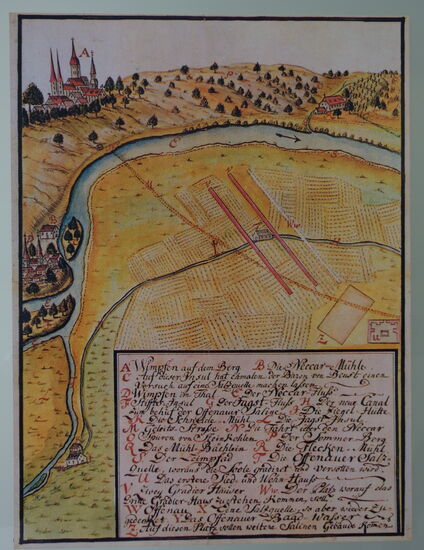 A Wimpfen auf dem Berg B Die Neccar-Mühle
C Auf dieser Insul hat ehmalen der Baron von Beust einen
Versuch auf eine Salzquelle machen lassen
D Wimpfen im Thal E Der Neccar Fluß
Insul G Der Jagst Fluß H Der neue Canal
zum behuf der Offenauer Saline I Die Ziegel Hütte
K Die Mühl Die Jagst Insul
M Geleits Straße Die Fahrt über den Neccar
O Spuren von SteinKohlen P Der Sommer Berg
Q Das Mühl Bächlein R Die Flecken Mühl
Der T Die Offenauer Salz
Quelle, woraus die Soole gradiret und versotten wird
U Das erstere Sied und Wohn Hauß
V Zwey Gradier Häuser W Der Platz worauf das
Dritte Gradier Hauß zu stehen Kommen soll
Offenau X Eine Salzquelle so aber wieder Zu
gedecket Y Das Offenauer Baad Wasser
Z Auf diesen Platz sollen weitere Salinen Gebäude Komen